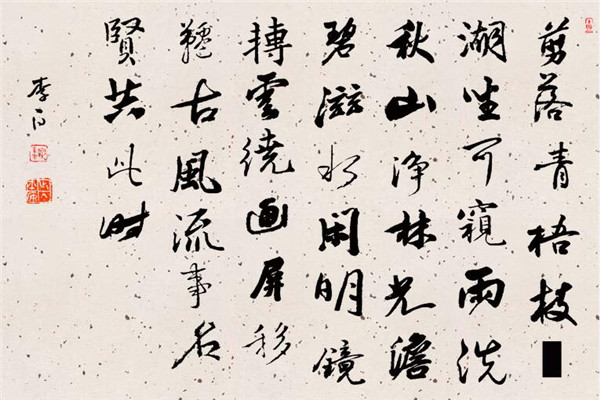 剪落青梧枝
湖坐可窺雨洗
秋山净林光澹
碧滋水闲明鏡
轉雲繞画屏移
韆古風流事名
賢共此时
李白